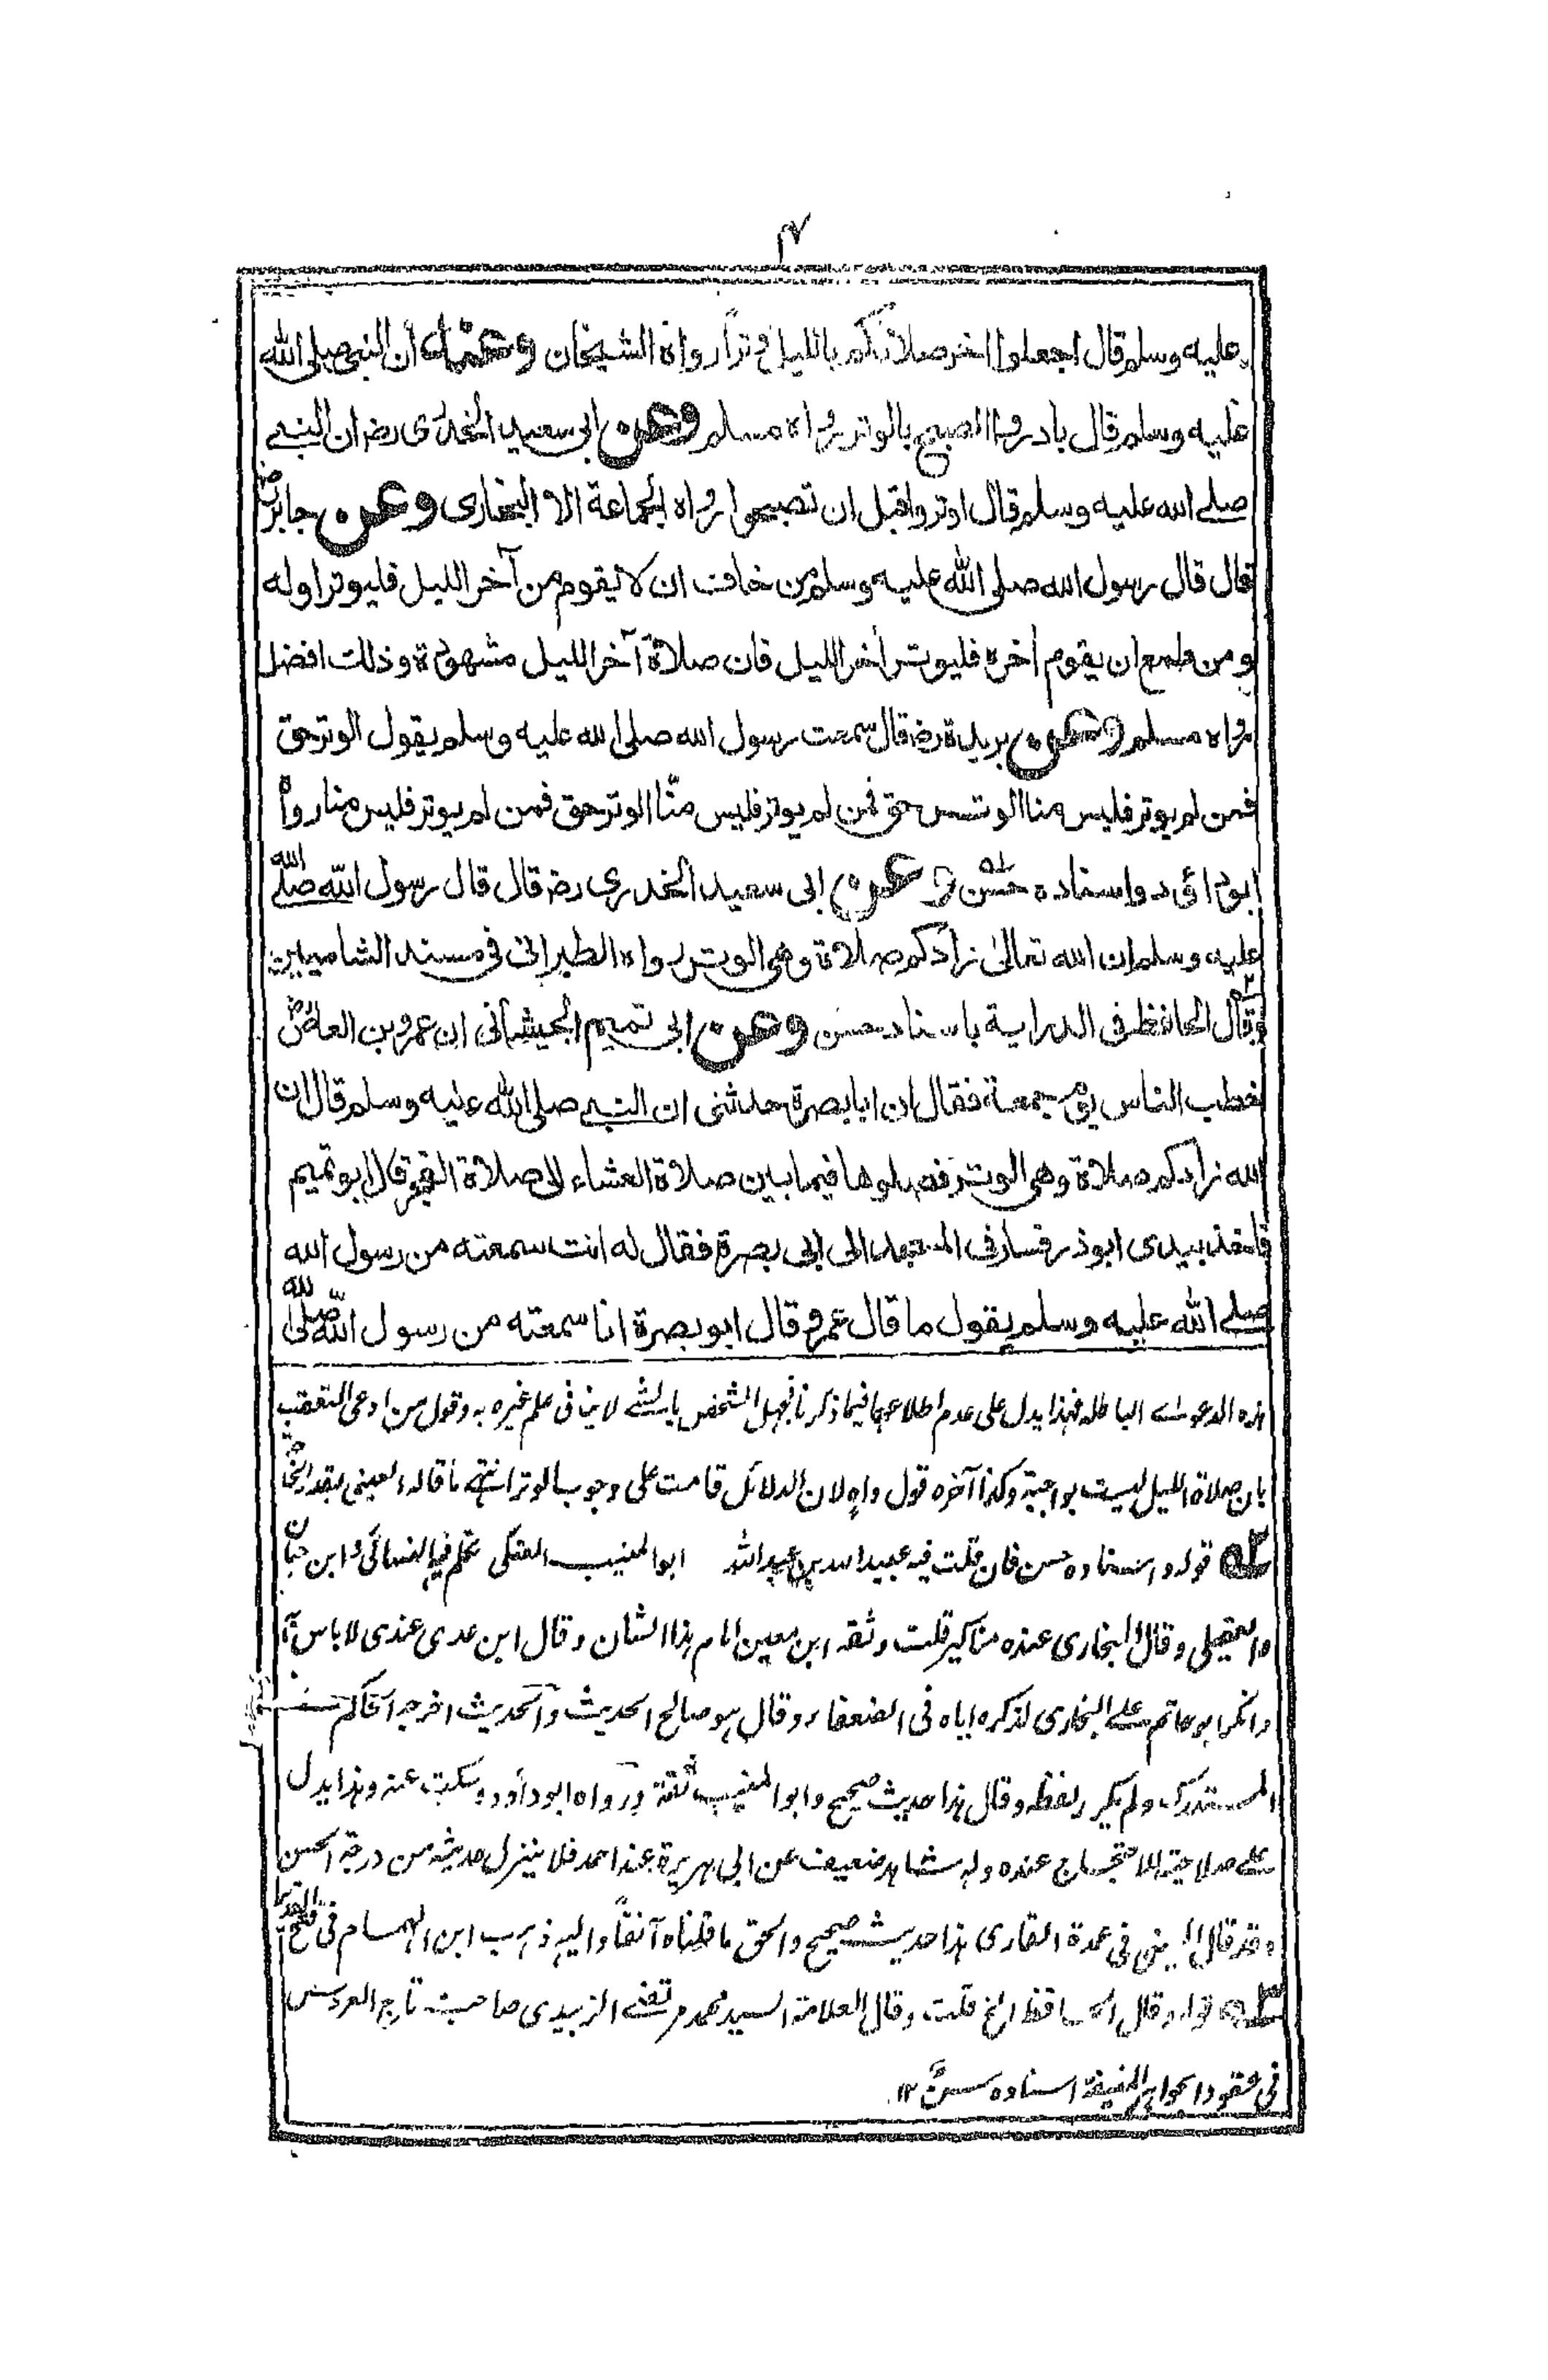 ۴
عليه وسلم قال اجعلوا اخر صلاتكم بالليل وترًا رواه الشيخان وعنه ان النبي صلى الله
عليه وسلم قال بادروا الصبح بالوتر رواه مسلم وعن ابى سعيد الخدرى رضـ ان النبے
صلے الله عليه وسلم قال اوتروا قبل ان تصبحوا رواه الجماعة الا البخارى وعن جابر رضـ
قال قال رسول الله صلى الله عليه وسلم من خاف ان لا يقوم من آخر الليل فليوتر اوله
ومن طمع ان يقوم أخره فليوتر أخر الليل فان صلاة آخر الليل مشهودة وذلك افضل
رواه مسلم وعن بريدة رضـ قال سمعت رسول الله صلى الله عليه وسلم يقول الوتر حق
فمن لم يوتر فليس منا الوتر حق فمن لم يوتر فليس منّا الوتر حق فمن لم يوتر فليس منا رواه
ابو دائود واسناده حسن وعن ابى سعيد الخدرى رضـ قال قال رسول الله صلے الله
عليه وسلم ان الله تعالىٰ زادكم صلاة وهى الوتر رواه الطبرانى فى مسند الشاميين
وقال الحافظ فى الدراية باسناد حسن وعن ابى تميم الجيشانى ان عمرو بن العاص رضـ
خطب الناس يوم جمعة فقال ان ابا بصرة حدثنى ان النبے صلى الله عليه وسلم قال ان
الله زادكم صلاة وهى الوتر فصلوها فيما بين صلاة العشاء الى صلاة الفجر قال ابو تميم
فاخذ بيدى ابوذر فسار فى المسجد الى ابى بصرة فقال له انت سمعته من رسول الله
صلے الله عليه وسلم يقول ما قال عمرو قال ابو بصرة انا سمعته من رسول الله صلى الله
هذه الدعواے الباطله فهذا يدل على عدم اطلاعهما فيما ذكرنا فجهل الشخص بالشے لا ينافى علم غيره به وقول من ادعى التعقب
بان صلاة الليل ليست بواجبة وكذا آخره قول واهٍ لان الدلائل قامت على وجوب الوتر انتهے ما قاله العينى بقدر
قوله واسناده حسن فان قلت فيه عبيد الله بن عبد الله ابو المنيب العتكى تكلم فيه النسائى وابن حبان
والعقيلى وقال البخارى عنده مناكير قلت وثقه ابن معين امام هذا الشان وقال ابن عدى عندى لا باس به
وانكر ابو حاتم علے البخارى لذكره اياه فى الضعفاء وقال هو صالح الحديث والحديث اخرجه الحاكم فے
المستدرك ولم يكرر لفظه وقال هذا حديث صحيح وابو المنيب ثقة ورواه ابو دأود وسكت عنه وهذا يدل
علے صلاحيته للاحتجاج عنده وله شاهد ضعيف عن ابى هريرة عند احمد فلا ينزل حديثه من درجة الحسن
وقد قال العينى فى عمدة القارى هذا حديث صحيح والحق ما قلناه آنفًا واليه ذهب ابن الهمام فى فتح القدير
قوله وقال الحافظ الخ قلت وقال العلامة السيد محمد مرتضے الزبيدى صاحب تاج العروس
فى عقود الجواهر المنيفة اسناده حسن ۱۲